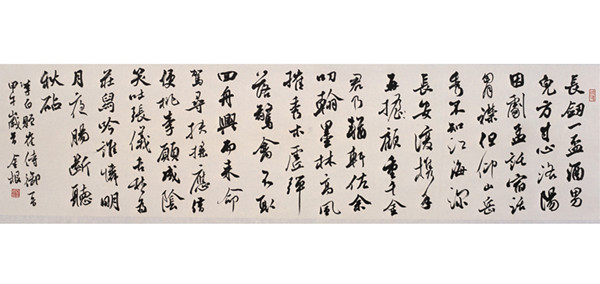 長劍一盃酒男
兒方寸心洛陽
因劇孟託宿話
胷襟但仰山岳
秀不知江海深
長安復攜手
再顧重千金
君乃輶軒佐余
叨翰墨林高風
摧秀木虛彈
落驚禽不取
回舟興而來命
駕尋扶搖應借
便桃李願成陰
笑吐張儀舌愁為
莊舄吟誰憐明
月夜腸斷聽
秋砧
李白贈崔侍御
甲午歲